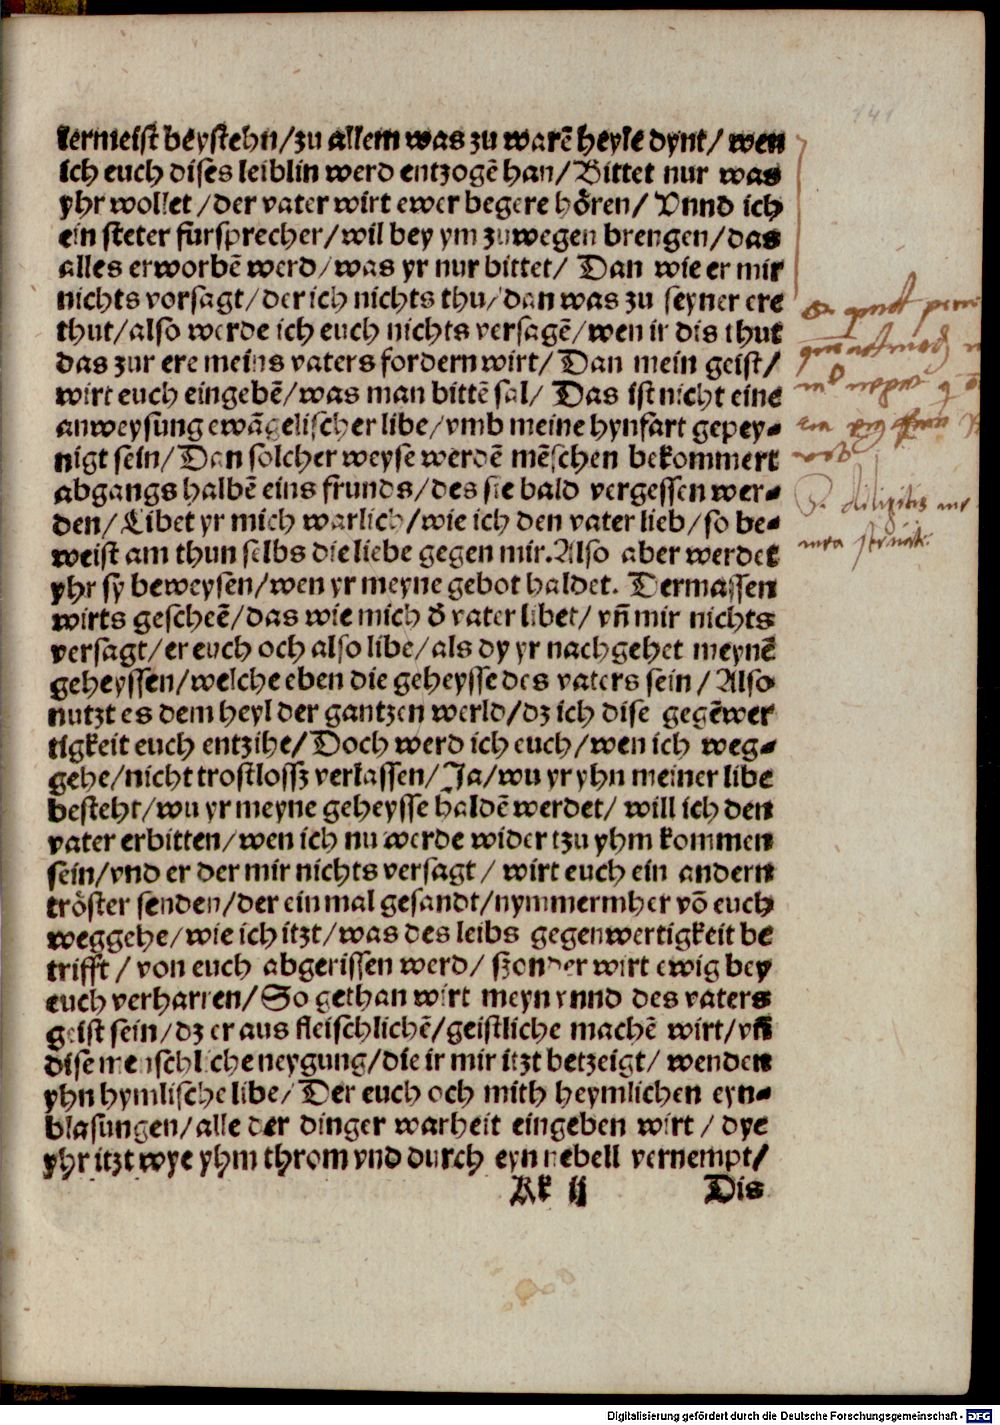 141
lermeist beystehn/zu allem was zu warē heyle dynt/ wen
ich euch dises leiblin werd entzogē han/ Bittet nur was
yhr wollet/der vater wirt ewer begere hören/ Vnnd ich
ein steter fursprecher/wil bey ym zuwegen brengen/das
alles erworbē werd/was yr nur bittet/ Dan wie er mir
nichts vorsagt/der ich nichts thu/dan was zu seyner ere
thut/also werde ich euch nichts versagē/wen ir dis thut
das zur ere meins vaters fordern wirt/ Dan mein geist/
wirt euch eingebē/was man bittē sal/ Das ist nicht eine
anweysung ewāgelischer libe/vmb meine hynfart gepey-
nigt sein/ Dan solcher weyse werdē mēschen bekommert
abgangs halbē eins frunds/des sie bald vergessen wer-
den/ Libet yr mich warlich/wie ich den vater lieb/so be-
weist am thun selbs die liebe gegen mir. Also aber werdet
yhr sy beweysen/wen yr meyne gebot haldet. Dermassen
wirts gescheē/das wie mich d̄ vater libet/ vn̄ mir nichts
versagt/er euch och also libe/als dy yr nachgehet meynē
geheyssen/welche eben die geheysse des vaters sein/ Also
nutzt es dem heyl der gantzen werld/dz ich dise gegēwer
tigkeit euch entzihe/ Doch werd ich euch/wen ich weg-
gehe/nicht trostlossz verlassen/ Ja/wu yr yhn meiner libe
besteht/wu yr meyne geheysse haldē werdet/ will ich den
vater erbitten/wen ich nu werde wider tzu yhm kommen
sein/vnd er der mir nichts versagt/ wirt euch ein andern
tröster senden/der ein mal gesandt/nymmermher vō euch
weggehe/wie ich itzt/was des leibs gegenwertigkeit be
trifft/ von euch abgerissen werd/ ßonder wirt ewig bey
euch verharren/ So gethan wirt meyn vnnd des vaters
geist sein/dz er aus fleischlichē/geistliche machē wirt/vn̄
dise menschliche neygung/die ir mir itzt betzeigt/ wenden
yhn hymlische libe/ Der euch och mith heymlichen eyn-
blasungen/alle der dinger warheit eingeben wirt/ dye
yhr itzt wye yhm throm vnd durch eyn nebell vernempt/
Kk ij Dis
Digitalisierung gefördert durch die Deutsche Forschungsgemeinschaft - DFG